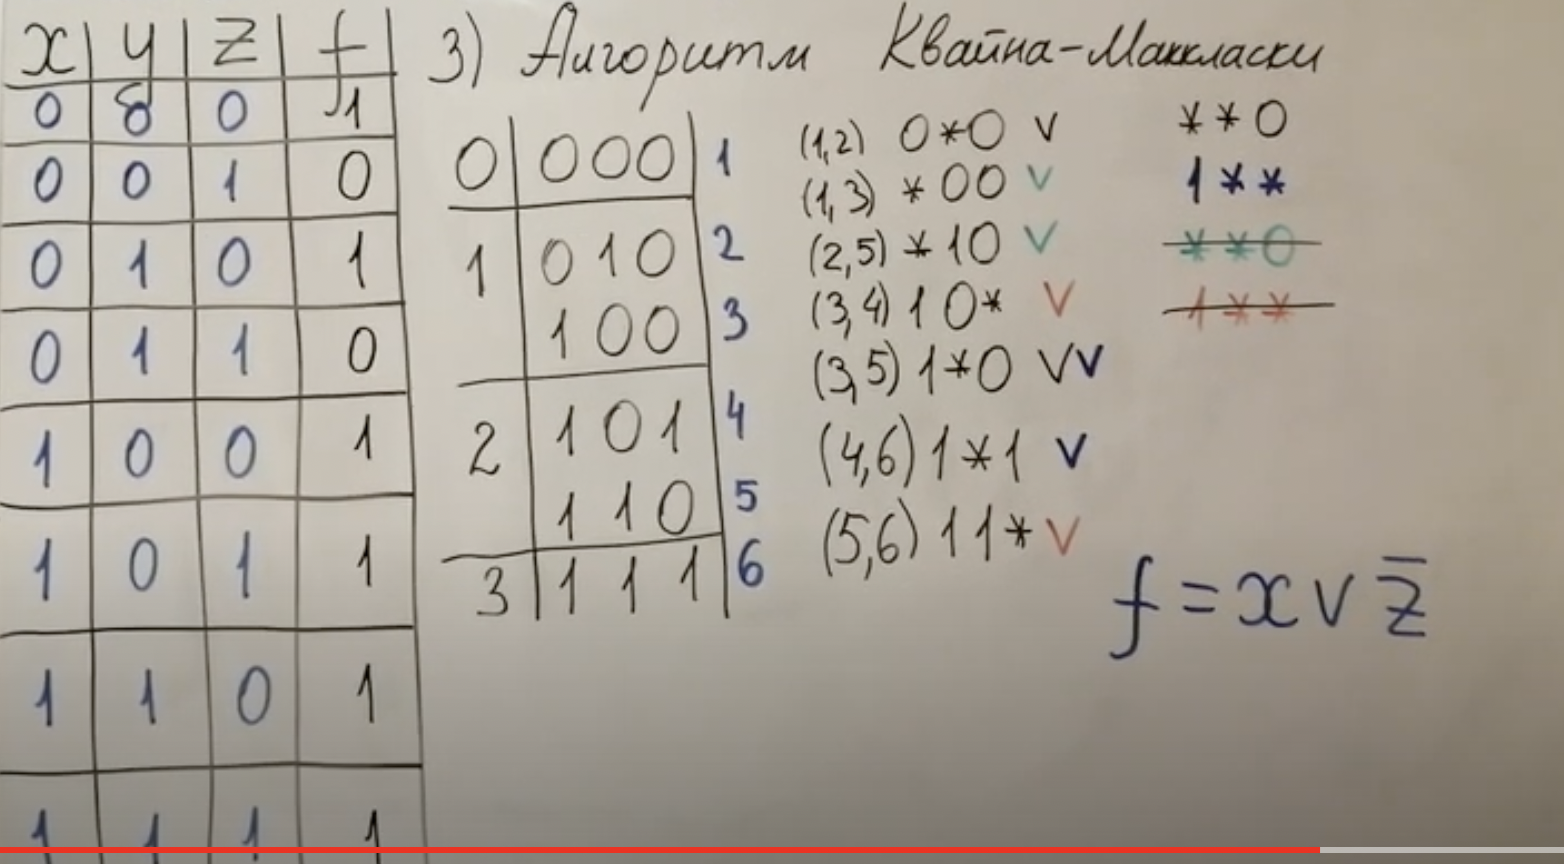 x y z f
0 0 0 1
0 0 1 0
0 1 0 1
0 1 1 0
1 0 0 1
1 0 1 1
1 1 0 1
1 1 1 1
3) Алгоритм Квайна-Маккласки
0 000 1
1 010 2
100 3
2 101 4
110 5
3 111 6
(1,2) 0*0 v
(1,3) *00 v
(2,5) *10 v
(3,4) 10* v
(3,5) 1*0 vv
(4,6) 1*1 v
(5,6) 11* v
**0
1**
**0
1**
f = x v z̅